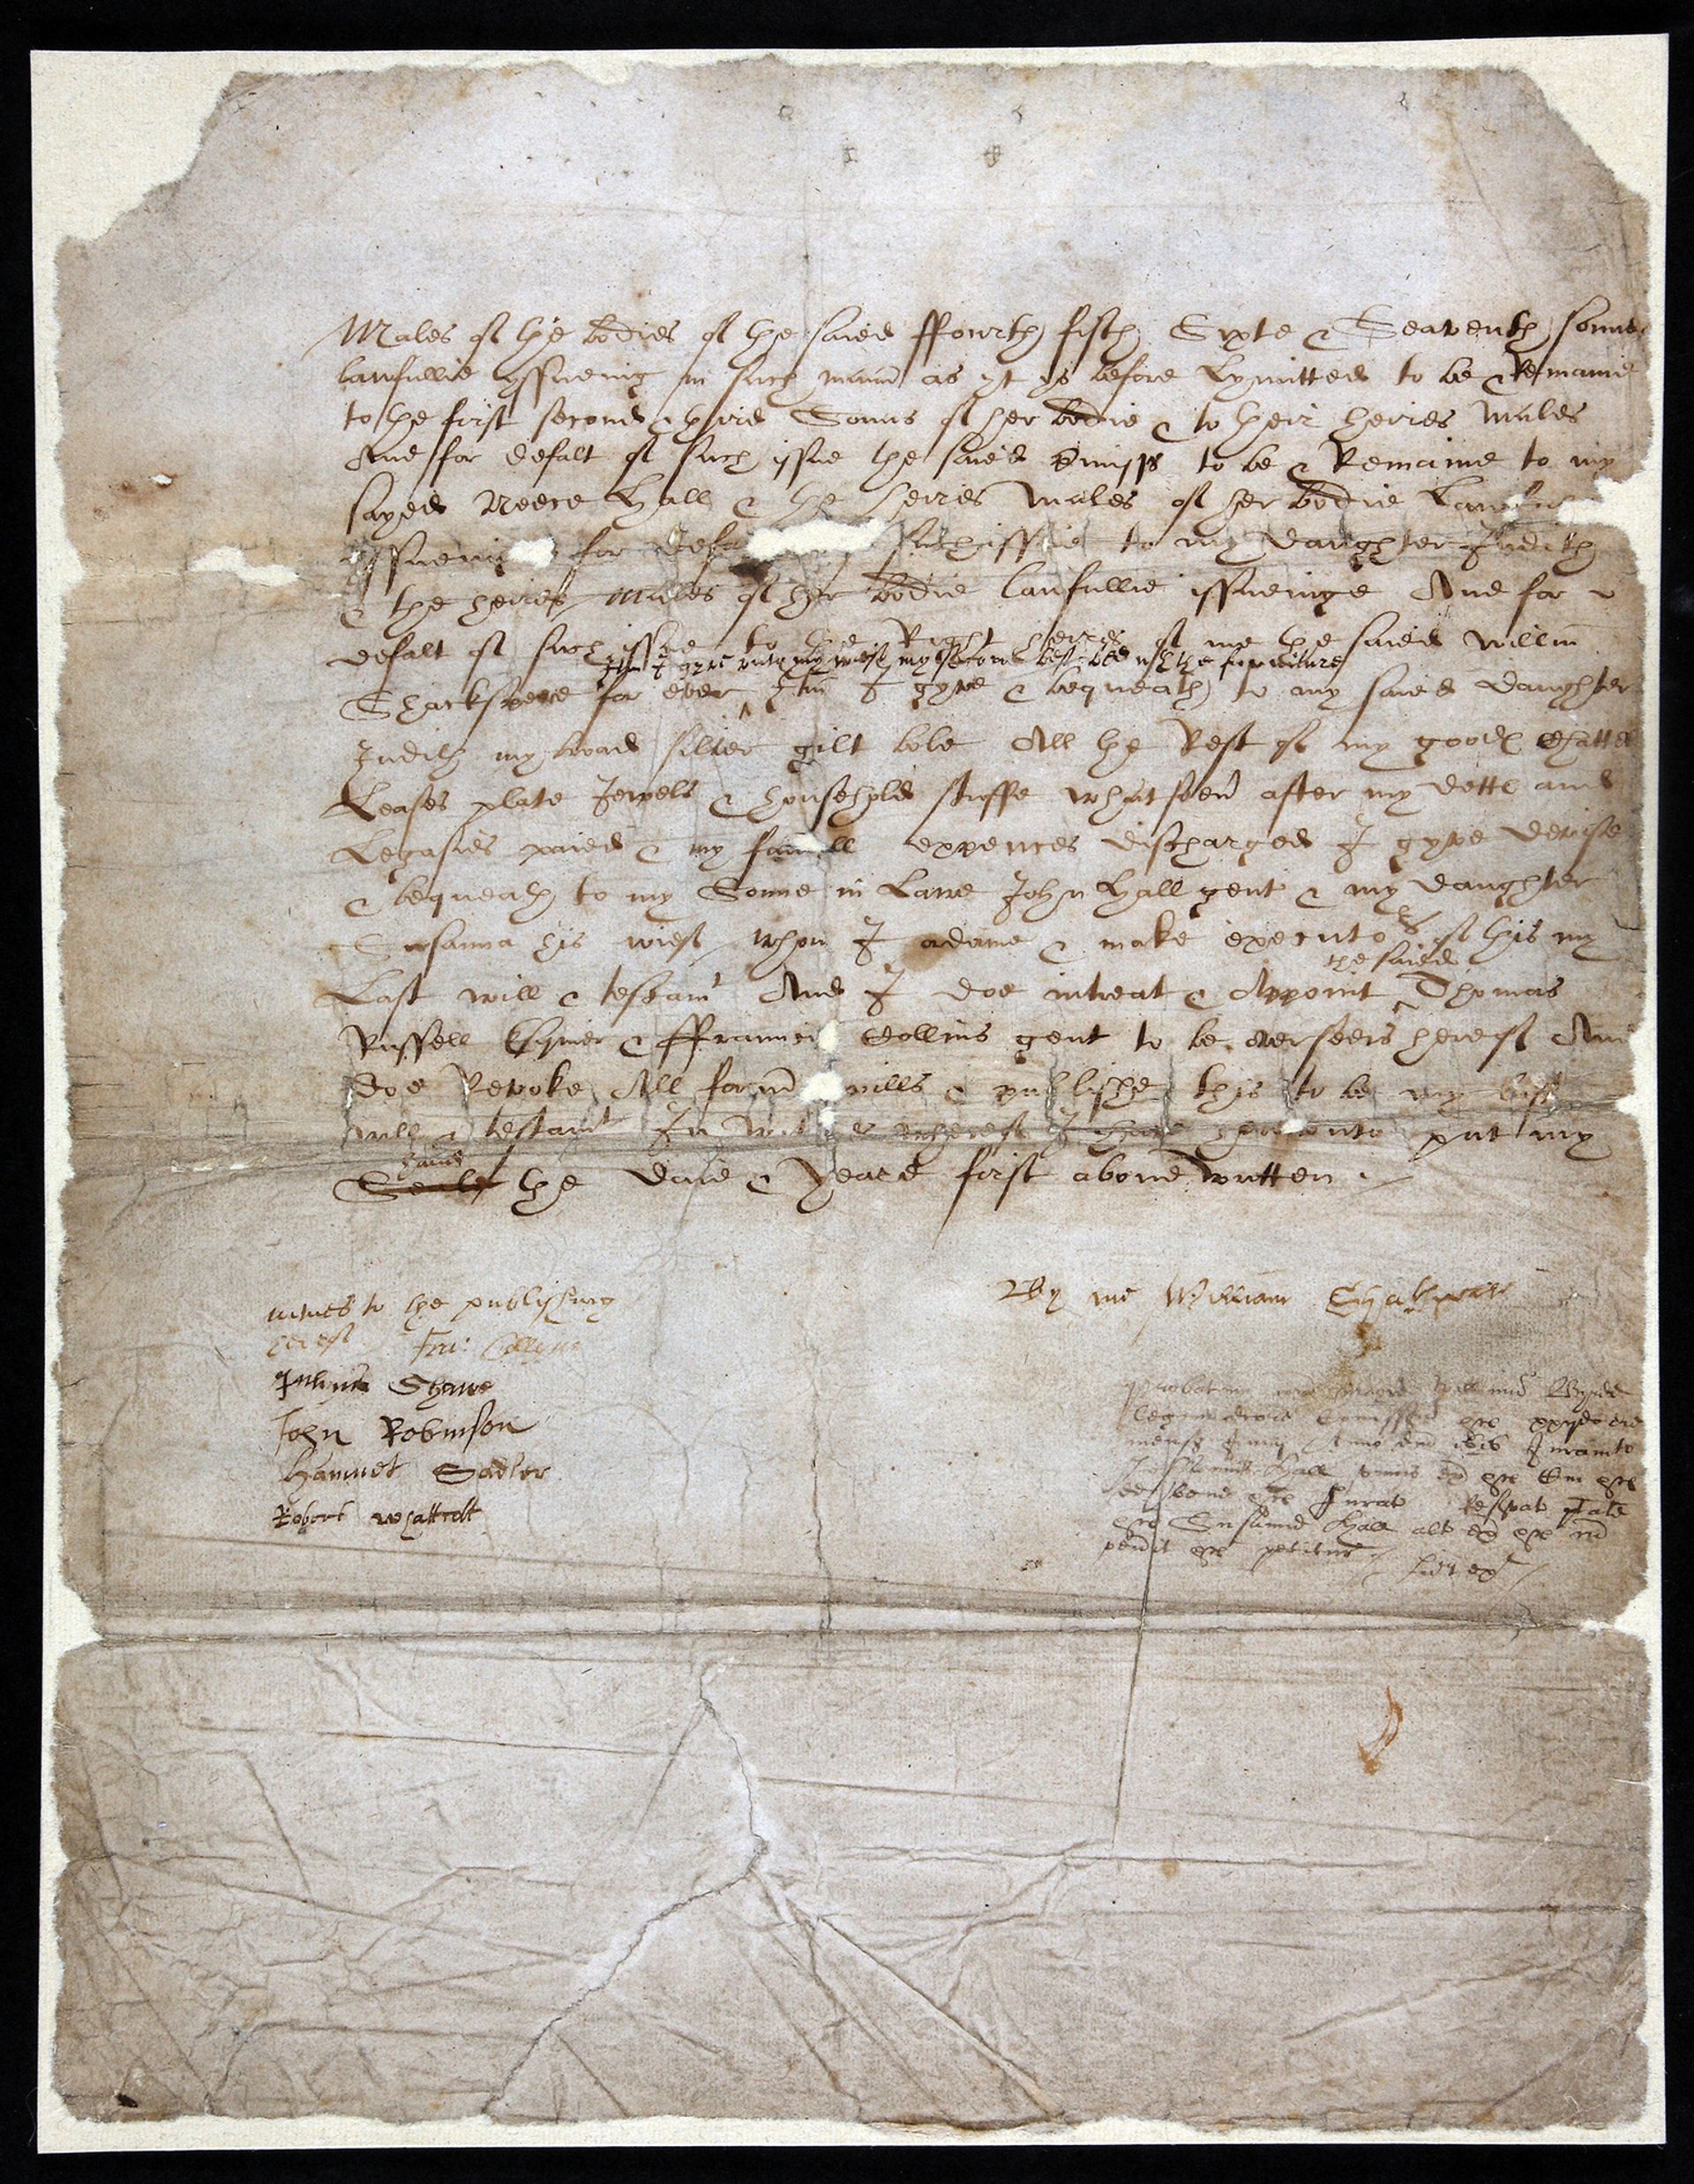 Males of the bodies of the saied ffourth fifth Sixte & Seaventh sonnes
lawfullie yssueing in such mann as yt ys before Lymitted to be & Remaine
to the first second & third Sonns of her bodie & to their heires Males
And for defalt of such issue the saied premisss to be & Remaine to my
sayed Neece Hall & the heires Males of her bodie Lawfull
yssueing for defa such issue to my daughter Judith
& the heires Males of her bodie lawfullie issueinge And for
defalt of such issue to the Right heires of me the saied willm
Itm I gyve unto my wief my second best bed wth the furniture
Shackspeere for ever Itm I gyve & bequeath to my saied daughter
Judith my broad silver gilt bole All the Rest of my goodes Chattel
Leases plate Jewels & household stuffe whatsoever after my dettes and
Legasies paied & my funerall expences discharged I gyve devise
& bequeath to my Sonne in Lawe John Hall gent & my daughter
Susanna his wief whom I ordaine & make executors of this my
the saied
Last will & testamt And I doe intreat & Appoint Thomas
Russell Esquier & ffrauncis Collins gent to be overseers hereof And
doe Revoke All formr wills & publishe this to be my last
will & testamt In witnes whereof I have hereunto put my
hand
Seale the daie & yeare first above written
witnes to the publishing
hereof Fra: Collyns
Julyus Shawe
John Robinson
Hamnet Sadler
Robert Whattcott
By me William Shakspeare
Probatum
legum
Anno 1616 Juramto
Hall
bene Jurat Reservat ptate
Susanne Hall alt
petitur